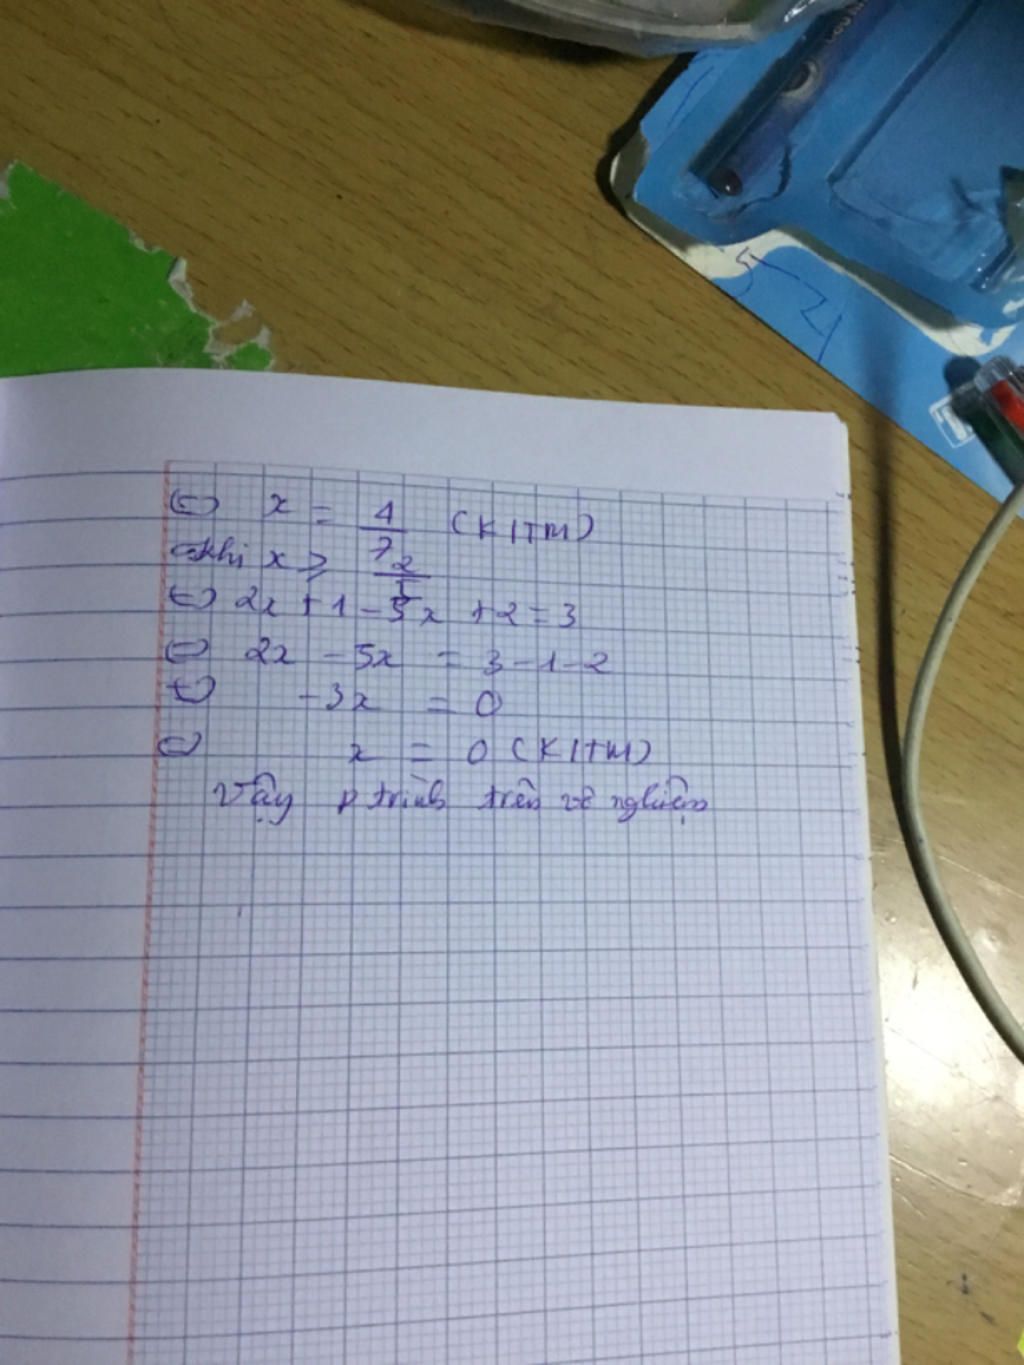 ⇔ x = 4/7 (K/TM)
khi x ≥ 2/5
⇔ 2x + 1 - 5x + 2 = 3
⇔ 2x - 5x = 3 - 1 - 2
⇔ -3x = 0
⇔ x = 0 (K/TM)
Vậy p trình trên vô nghiệm